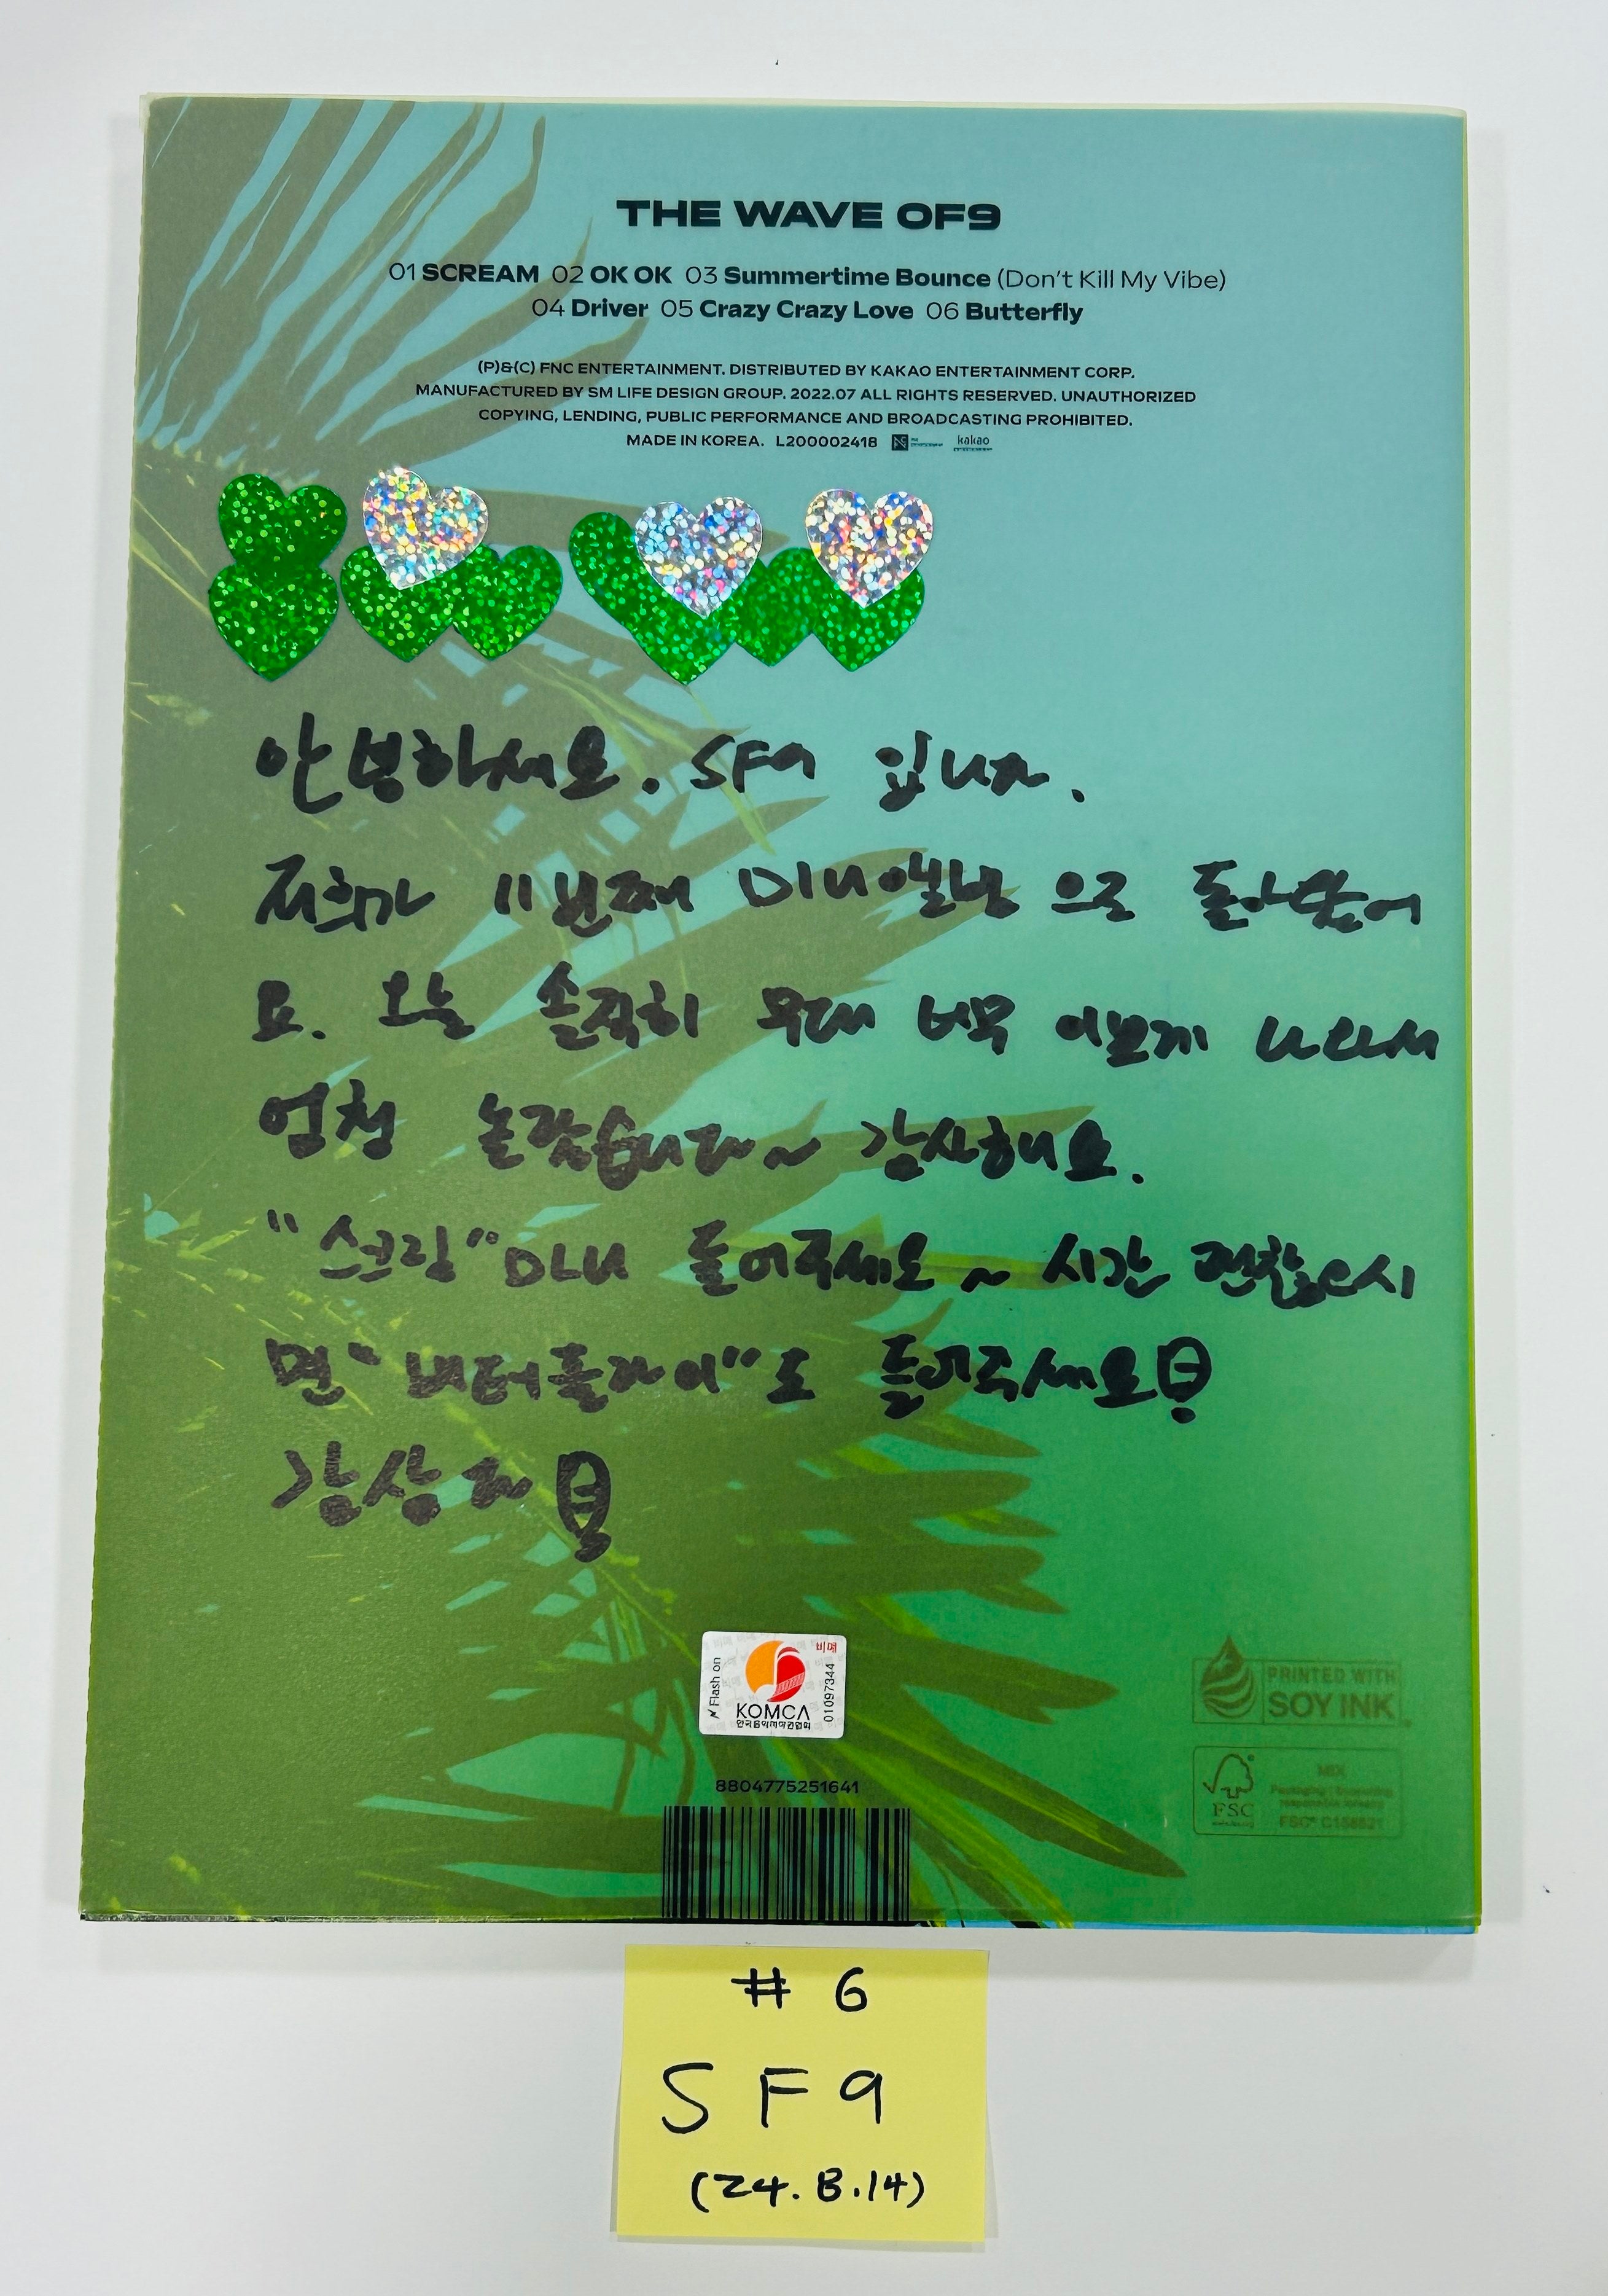 THE WAVE OF9
01 SCREAM 02 OK OK 03 Summertime Bounce (Don't Kill My Vibe)
04 Driver 05 Crazy Crazy Love 06 Butterfly
(P)&(C) FNC ENTERTAINMENT. DISTRIBUTED BY KAKAO ENTERTAINMENT CORP.
MANUFACTURED BY SM LIFE DESIGN GROUP. 2022.07 ALL RIGHTS RESERVED. UNAUTHORIZED
COPYING, LENDING, PUBLIC PERFORMANCE AND BROADCASTING PROHIBITED.
MADE IN KOREA. L200002418 kakao
안녕하세요. SF9 입니다.
저희가 11번째 미니앨범 으로 돌아왔어
요. 오늘 솔직히 무대 너무 이쁘게 나와서
엄청 놀랐습니다~ 감사해요.
"스크림" 많이 들어주세요~ 시간 괜찮으시
면 "버터플라이"도 들어주세요
감상
Flash on
비매
KOMCA
한국음악저작권협회
01097344
PRINTED WITH
SOY INK
FSC
MIX
FSC® C158821
8804775251641
# 6
SF9
(24.8.14)